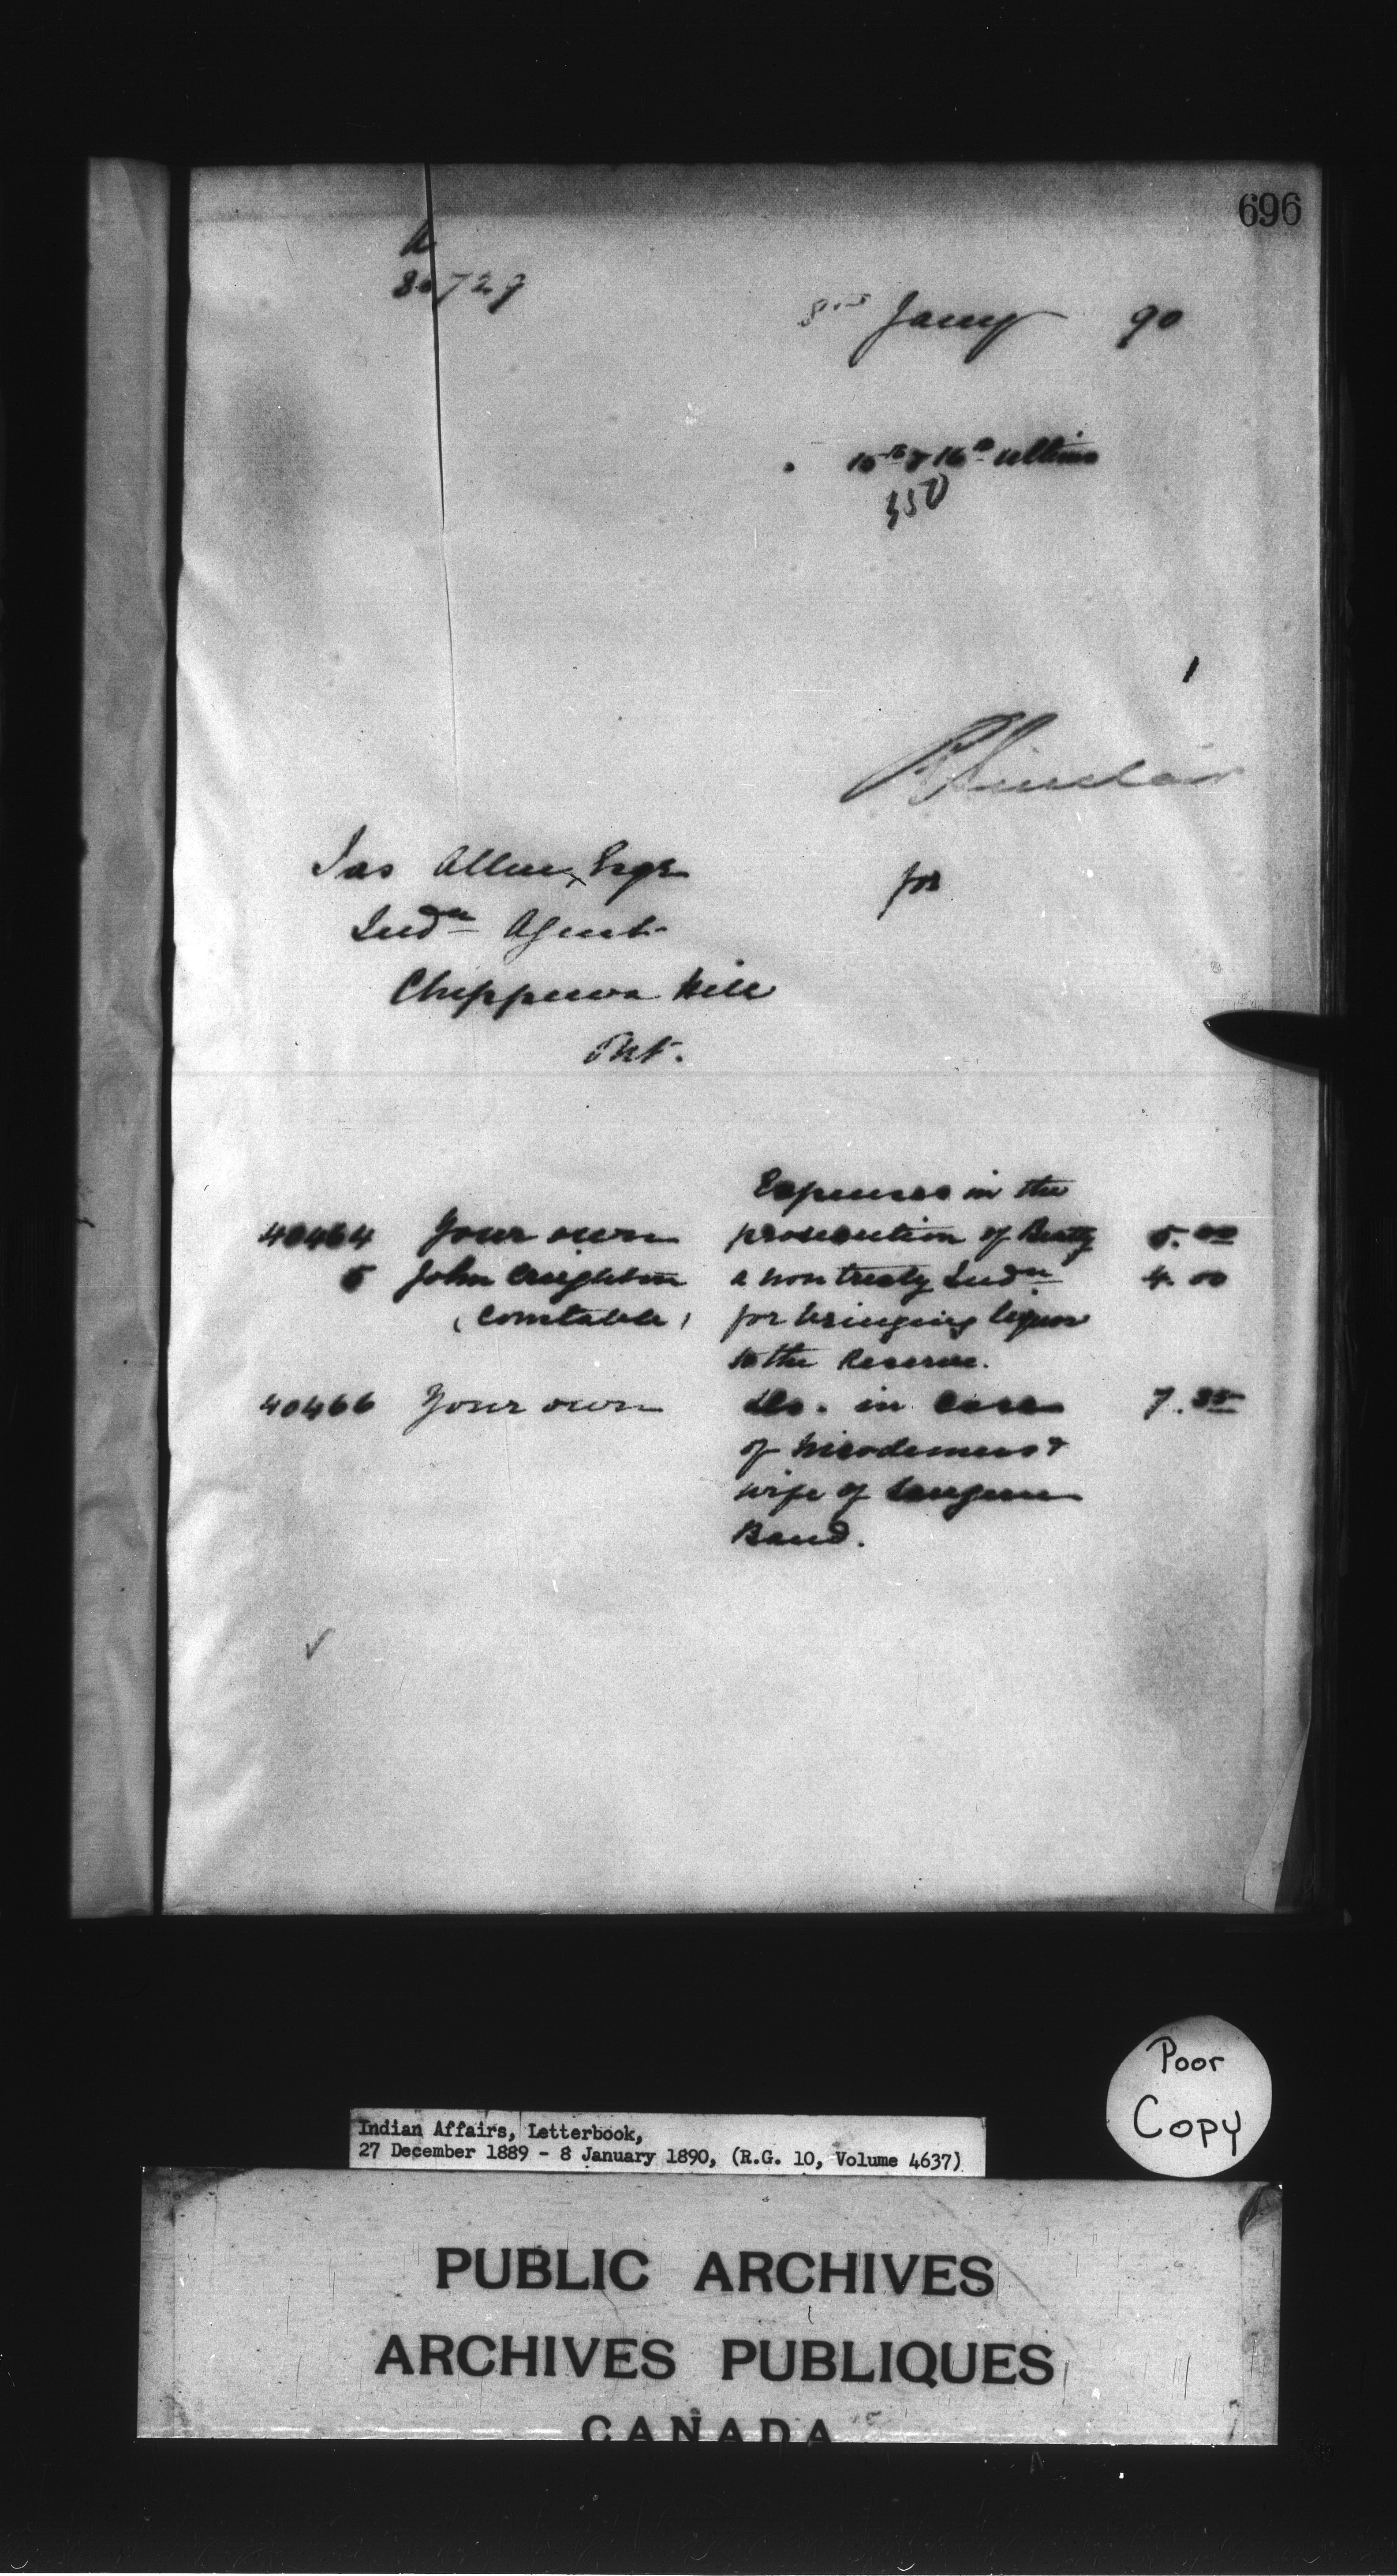 696
8th Jany 90
15th & 16th ultimo
350
R Sinclair
Jas Allen, Esqr for
Indn Agent
Chippewa Hill
Ont.
Expenses in the
40464 Your own prosecution of Beatty 5.00
5 John Creighton a non treaty Indn 4.00
(Constable) for bringing liquor
to the Reserve.
40466 Your own do. in case 7.35
of Nicodemus &
wife of Saugeen
Band.
Poor
Copy
Indian Affairs, Letterbook,
27 December 1889 - 8 January 1890, (R.G. 10, Volume 4637)
PUBLIC ARCHIVES
ARCHIVES PUBLIQUES
CANADA